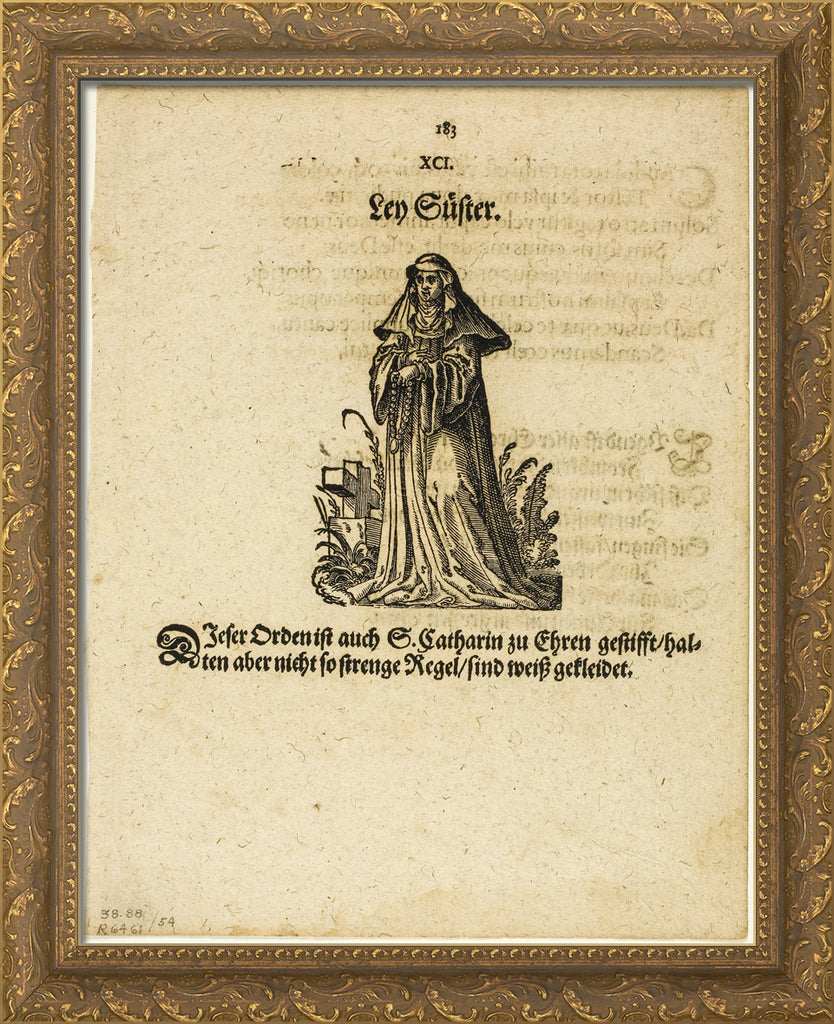 183
XCI.
Ley Süster.
DJeser Orden ist auch S. Catharin zu Ehren gestifft/hal-
ten aber nicht so strenge Regel/sind weiß gekleidet.
38.88
R6461/54